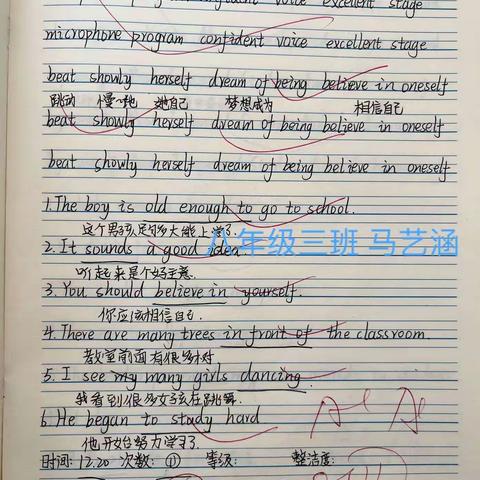 voice excellent stage
microphone program confident voice excellent stage
beat showly herself dream of being believe in oneself
跳动 慢慢地 她自己 梦想成为 相信自己
beat showly herself dream of being believe in oneself
beat showly herself dream of being believe in oneself
1. The boy is old enough to go to school.
这个男孩足够大能上学了.
2. It sounds a good idea.
八年级三班 马艺涵
听起来是个好主意.
3. You should believe in yourself.
你应该相信自己.
4. There are many trees in front of the classroom.
教室前面有很多树
5. I see my many girls dancing.
我看到很多女孩在跳舞.
6. He began to study hard
他开始努力学习了.
时间: 12.20 次数: ① 等级: 整洁度: